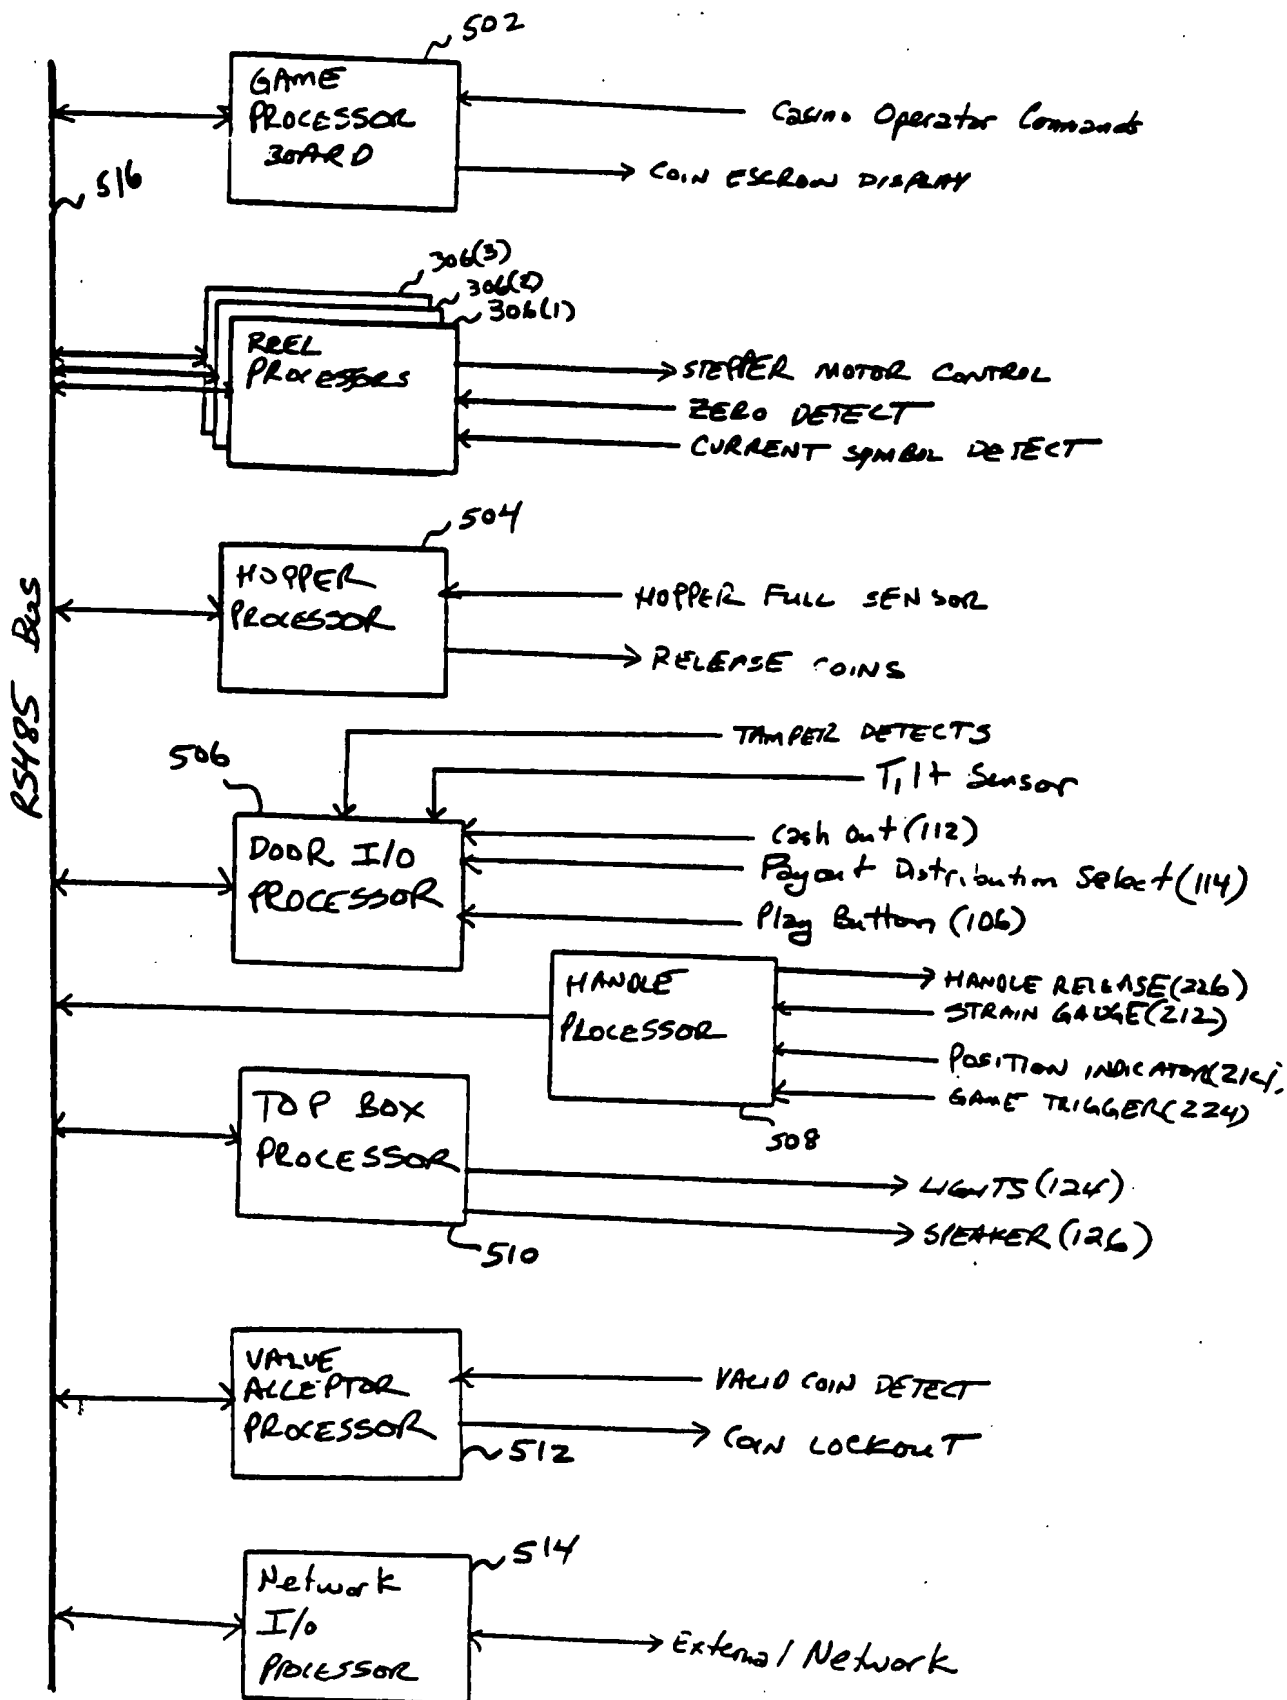 502
GAME
PROCESSOR
BOARD
Casino Operator Commands
COIN ESCROW DISPLAY
516
306(3)
306(2)
306(1)
REEL
PROCESSORS
STEPPER MOTOR CONTROL
ZERO DETECT
CURRENT SYMBOL DETECT
504
HOPPER
PROCESSOR
HOPPER FULL SENSOR
RELEASE COINS
RS485 Bus
TAMPER DETECTS
Tilt Sensor
506
DOOR I/O
PROCESSOR
Cash Out (112)
Payout Distribution Select (114)
Play Button (106)
HANDLE
PROCESSOR
HANDLE RELEASE (226)
STRAIN GAUGE (212)
POSITION INDICATOR (214)
GAME TRIGGER (224)
508
TOP BOX
PROCESSOR
LIGHTS (124)
SPEAKER (126)
510
VALUE
ACCEPTOR
PROCESSOR
VALID COIN DETECT
COIN LOCKOUT
512
514
Network
I/O
PROCESSOR
External Network